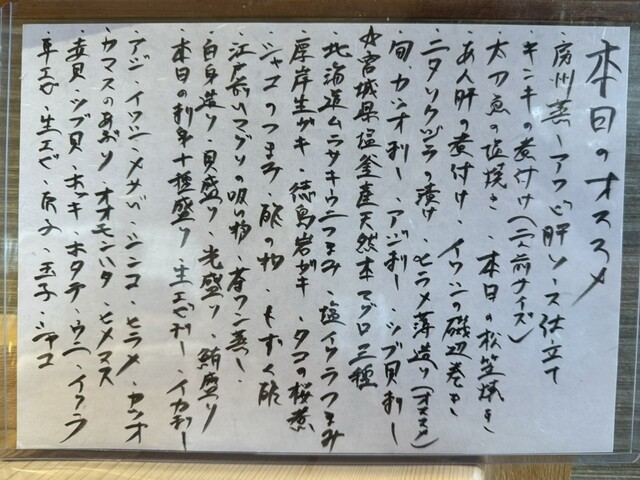 本日のオススメ
・房州蒸しアワビ肝ソース仕立て
・キンキの煮付け(二人前サイズ)
・太刀魚の塩焼き・本日の松笠焼き
・あん肝の煮付け・イワシの磯辺巻き
・ニタリクジラの漬け・ヒラメ薄造り(オススメ)
・旬カツオ刺し・アジ刺し・ツブ貝刺し
☆宮城県塩釜産天然本マグロ三種
・北海道ムラサキウニつまみ・塩イクラつまみ
・厚岸生ガキ・徳島岩ガキ・タコの桜煮
・シャコのつまみ・酢の物・もずく酢
・江戸前ハマグリの吸い物・茶ワン蒸し・
・白身造り・貝盛り・光盛り・鮪盛り
・本日の刺身十種盛り・生エビ刺し・イカ刺し
・アジ・イワシ・〆サバ・シンコ・ヒラメ・カツオ
・カマスのあぶり・オオモンハタ・ヒメマス
・赤貝・ツブ貝・ホッキ・ホタテ・ウニ・イクラ
・車エビ・生エビ・穴子・玉子・シャコ